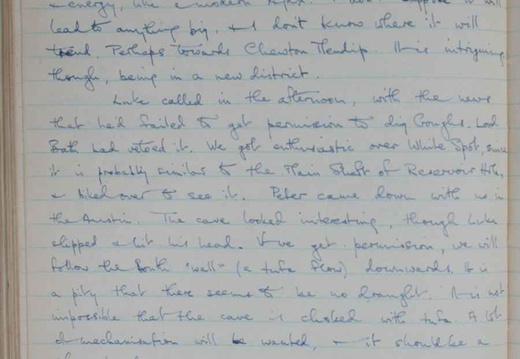 & energy, like a modern Ajax. I don't suppose it will
lead to anything big, & I don't know where it will
trend. Perhaps towards Chewton Mendip. It is intriguing
though, being in a new district.
Luke called in the afternoon, with the news
that he'd failed to get permission to dig Gough's. Lord
Bath had vetoed it. We got enthusiastic over White Spot, since
it is probably similar to the Main Shaft of Reservoir Hole,
& hiked over to see it. Peter came down with us in
the Austin. The cave looked interesting, though Luke
slipped & hit his head. If we get permission, we will
follow the South "wall" (a tufa flow) downwards. It is
a pity that there seems to be no draught. It is not
impossible that the cave is choked with tufa. A lot
of mechanisation will be wanted, & it should be a